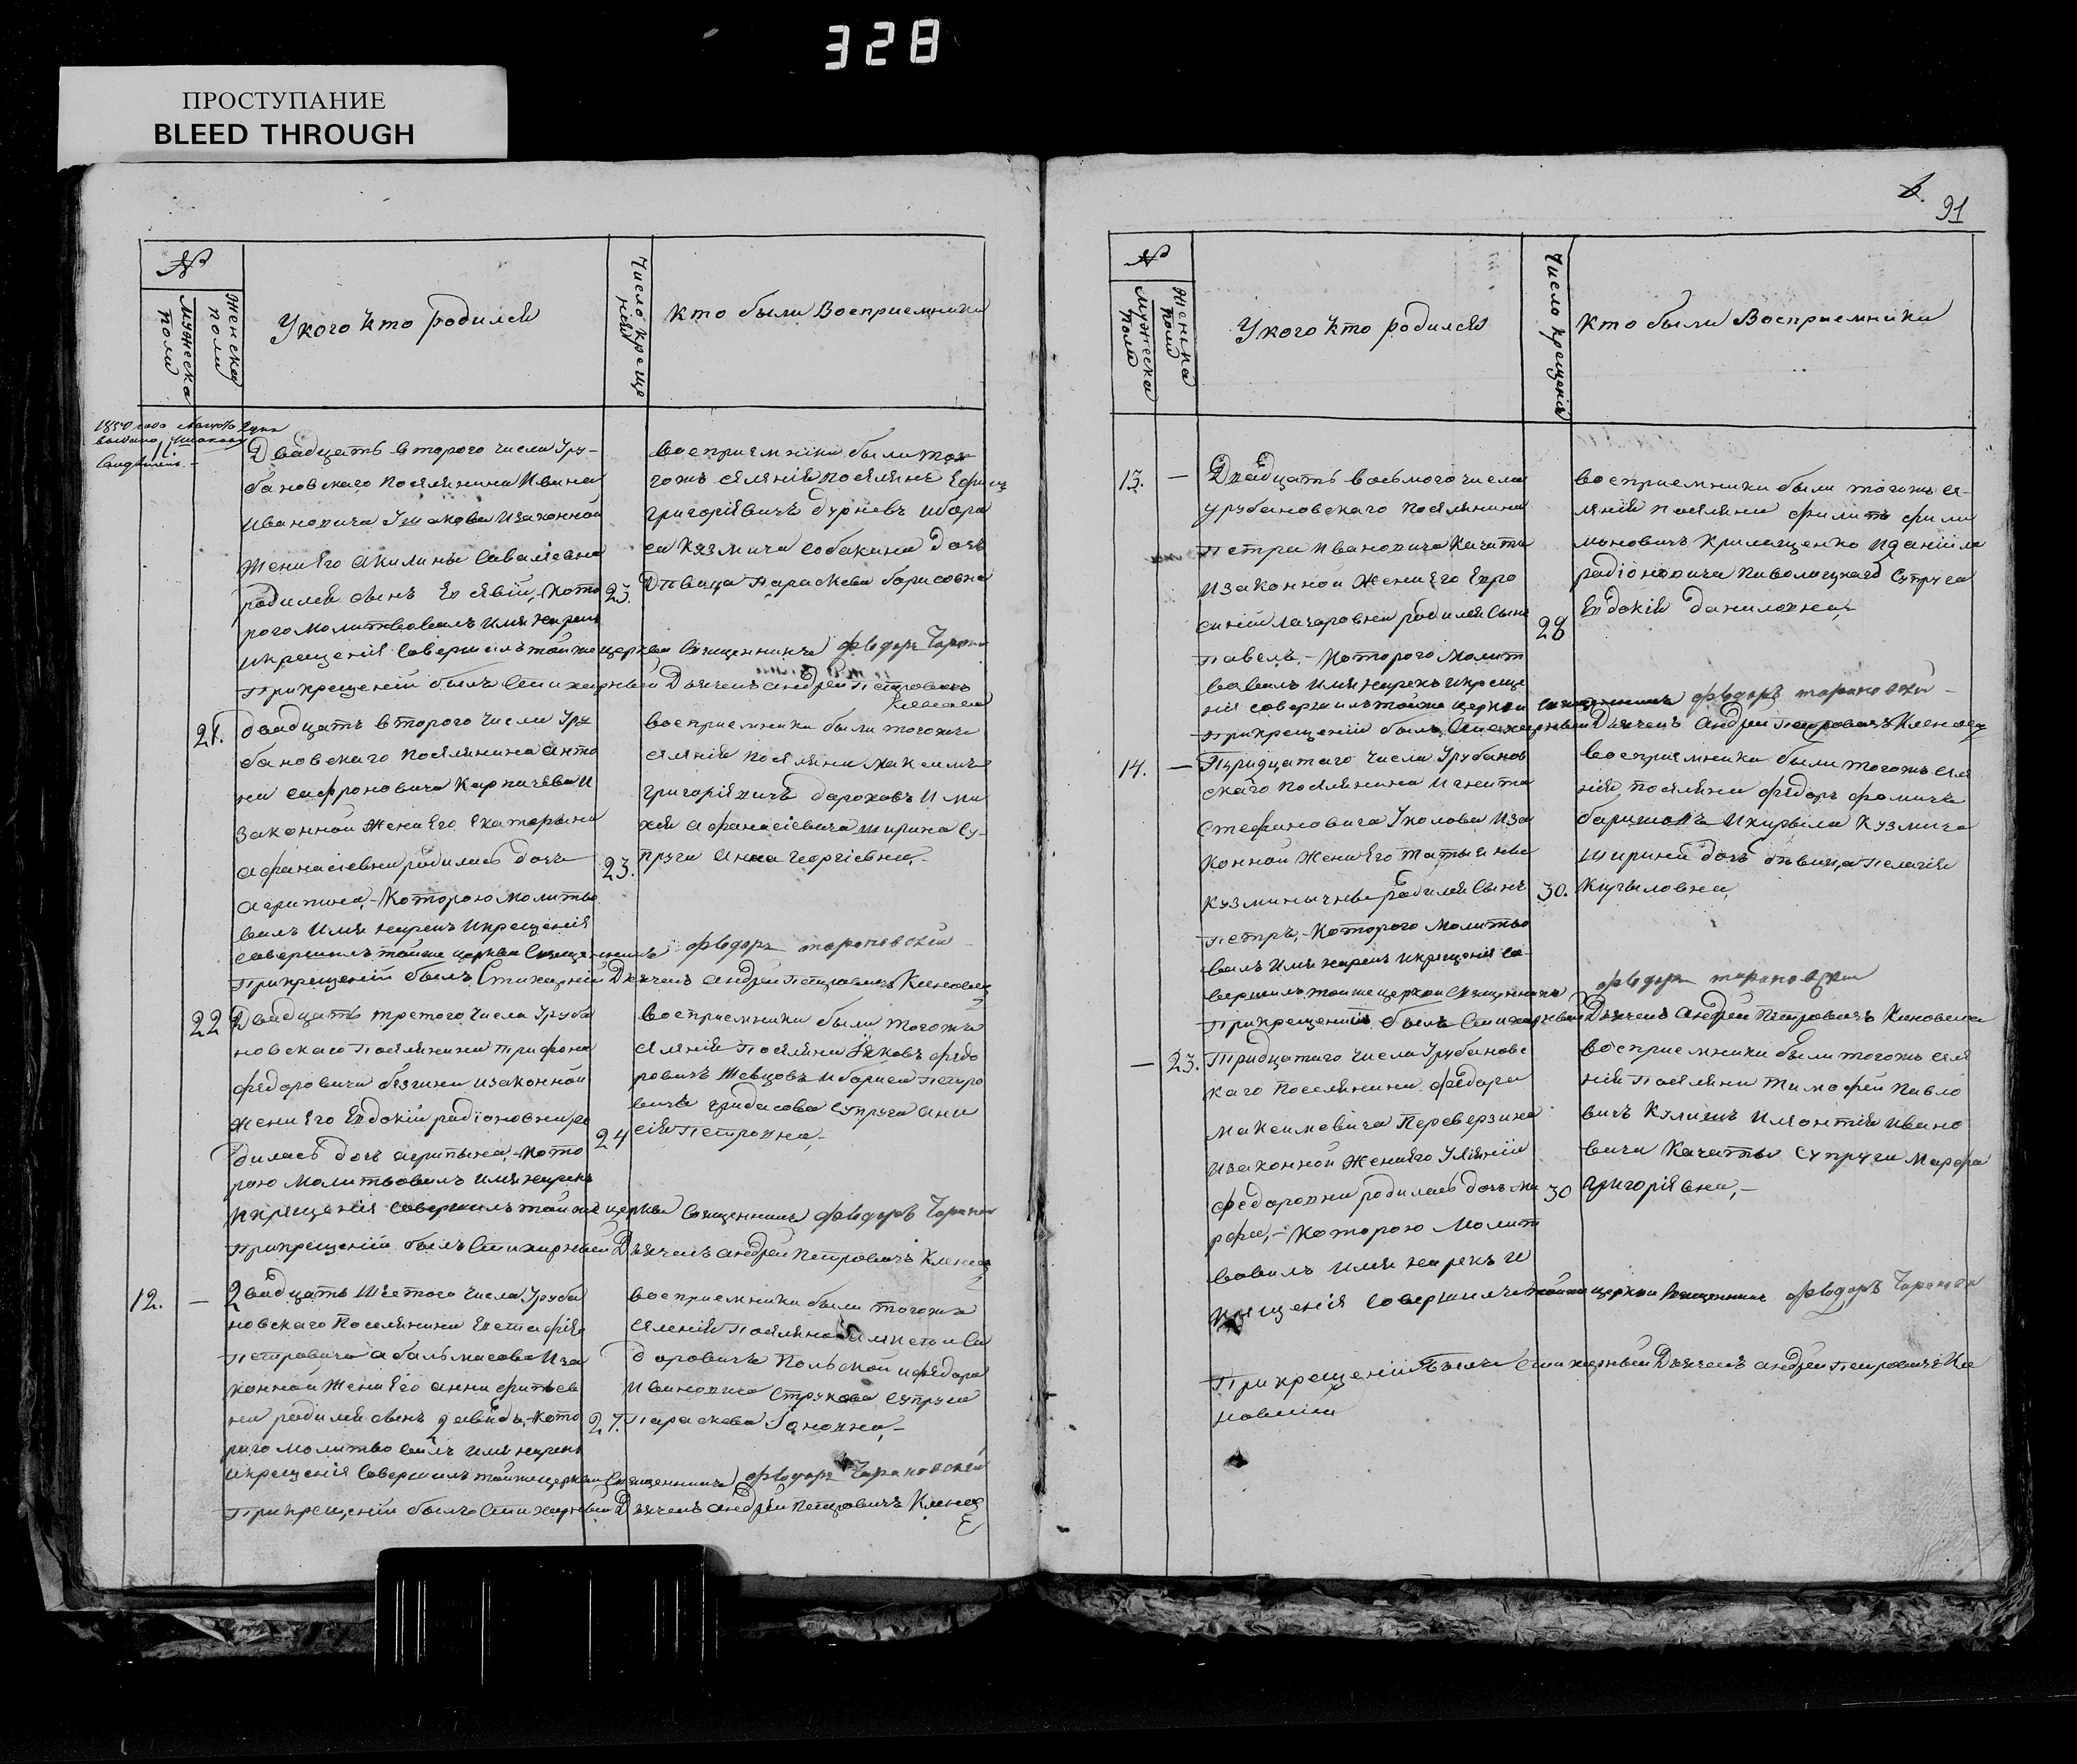 328
ПРОСТУПАНИЕ
BLEED THROUGH
№
Женска пола
Мужеска пола
У кого кто родился
Число креще нія
Кто были Восприемники
1850 года
11.
Двадцать второго числа Уру-
бановскаго поселянина Ивана
Ивановича Ушакова изаконной
жены его Акилины Савелевны
родился сынъ Евсевій, - кото
раго молитвовалъ имя нарекъ
икрещенія совершилъ тойже церкви священникъ Фѣодоръ
При крещеніи былъ Стихарный Дьячекъ андрей Петровичъ
23.
восприемники были тог
гожъ селенія поселяне Ефимъ
григоріевичъ дурневъ ибори
са Кузмича собакина дочь
Дѣвица Параскева борисовна
21.
двадцать второго числа Уру
бановскаго поселянина анто
на сафроновича Карпачева и
законной жены его екатерины
афанасіевны родилась дочь
агрипина, - Которою молитво
валъ имя нарекъ икрещенія
совершилъ тойже церкви священникъ Фѣодоръ тарановскій
При крещеніи былъ Стихарній Дьячекъ андрей Петровичъ
23.
восприемники были тогоже
селенія поселяни Максимъ
григоріевичъ дароховъ и ми
хея афанасіевича ширина су-
пруга анна георгіевна, -
22
Двадцать третого числа Уруба
новскаго поселянина трифона
федоровича безгина изаконной
жены его Евдокіи радіоновны ро
дилась дочь агрипына, - кото
рою молитвовалъ имя нарекъ
икрещенія совершилъ тойже церкви священникъ Фѣодоръ
При крещеніи былъ Стихарный Дьячекъ андрей Петровичъ
24
восприемники были тогожъ
селенія поселяни Яковъ федо
ровичъ Шевцовъ ибориса Петро
вича грибасова супруга ани
сія Петровна, -
12. -
Двадцать шестого числа Уруба
новскаго поселянина Евстафія
Петровича абальмасова иза
конной жены его анны
ны родился сынъ давыдъ, - кото
раго молитвовалъ имя нарекъ
икрещенія совершилъ тойже церкви священникъ Фѣодоръ тарановскій
При крещеніи былъ Стихарный Дьячекъ андрей Петровичъ
27.
восприемники были тогожъ
селенія поселяне Си
доровичъ Польской ифедора
Ивановича Струкова супруга
Параскева
91
№
Женска пола
Мужеска пола
У кого кто родился
Число крещенія
Кто были Восприемники
13. -
Двадцать восьмого числа
урубановскаго поселянина
Петра Ивановича Качати
изаконной жены его Евро
синіи Лазаровны родился сынъ
Павелъ, - которого молит
вовалъ имя нарекъ икреще
нія совершилъ тойже церкви священникъ Фѣодоръ тарановскій
При крещеніи былъ Стихарный Дьячекъ андрей Петровичъ
28
восприемники были тогожъ се-
ленія поселяни филипъ фили
моновичъ Крилащенко иданіила
радіоновича Поволоцкаго супруга
Евдокія Даниловна, -
14. -
Тридцатаго числа Урубанов
скаго поселянина Игната
Стефановича Уколова иза
конной жены его Татыяны
Кузминычны родился сынъ
Петръ, - которого молитво
валъ имя нарекъ икрещенія со-
вершилъ тойже церкви священникъ Фѣодоръ тарановскій
При крещеніи былъ Стихарный Дьячекъ андрей Петровичъ
30.
восприемники были тогожъ селе
нія поселяни федоръ фомичъ
икирыла Кузмича
ширина дочь дѣвица Пелагія
Кирыловна,
- 23.
Тридцатаго числа Урубановс
каго поселянина федора
Максимовича Переверзина
изаконной жены его Уліяніи
федоровны родилась дочь Ма
рфа, - Которою молит
вовалъ имя нарекъ и
крещенія совершилъ тойже церкви священникъ Фѣодоръ
При крещеніи былъ Стихарный Дьячекъ андрей Петровичъ
30
восприемники были тогожъ селе
нія поселяни тимофей Павло
вичъ Кулишъ илеонтія Ивано
вича Качаты супруга Марфа
григоріевна, -